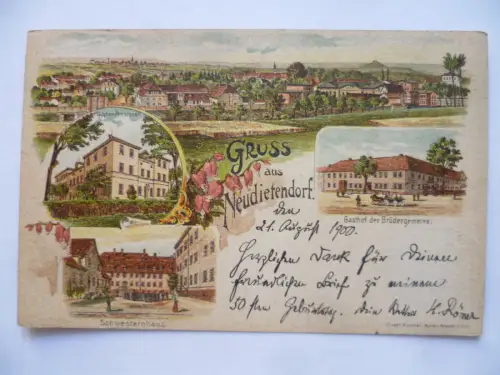 Gruss
aus
Neudietendorf.
Gasthof der Brüdergemeine.
Schwesternhaus
den
21. August 1900.
Herzlichen Dank für Deinen
freundlichen Brief zu meinem
50sten Geburtstag. Dein H. Römer